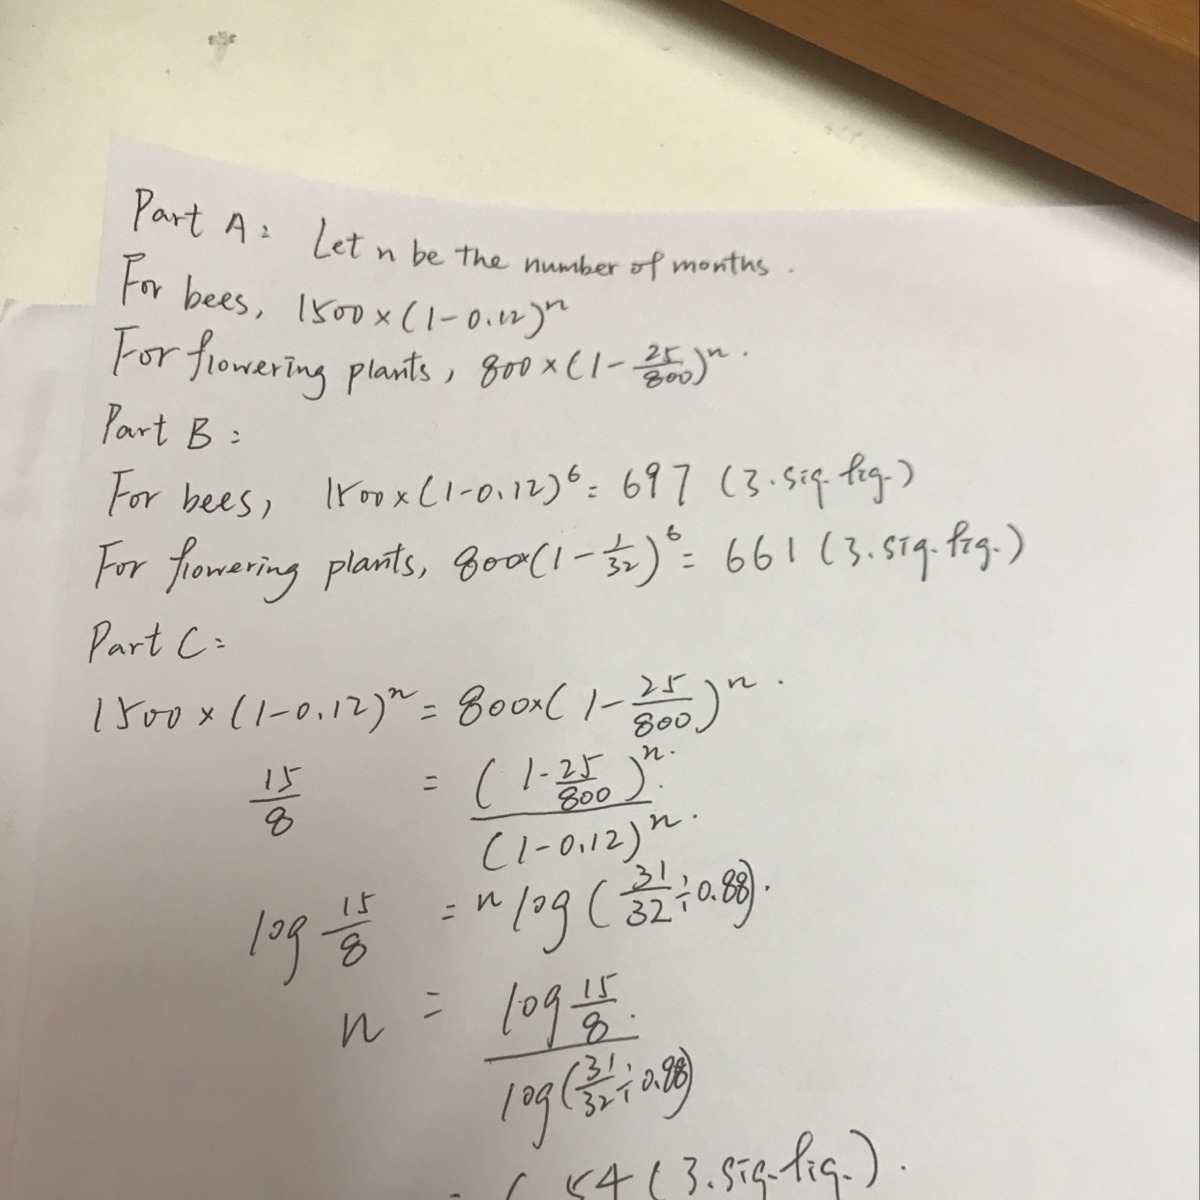 Part A: Let n be the number of months.
For bees, 1500×(1-0.12)^n
For flowering plants, 800×(1-25/800)^n.
Part B:
For bees, 1500×(1-0.12)^6= 697 (3.sig.fig.)
For flowering plants, 800×(1-1/32)^6= 661 (3.sig.fig.)
Part C:
1500×(1-0.12)^n = 800×(1-25/800)^n.
15/8 = (1-25/800)^n. / (1-0.12)^n.
log 15/8 = n log (31/32÷0.88).
n = log 15/8. / log(31/32÷0.88)
= 54 (3.sig.fig.).